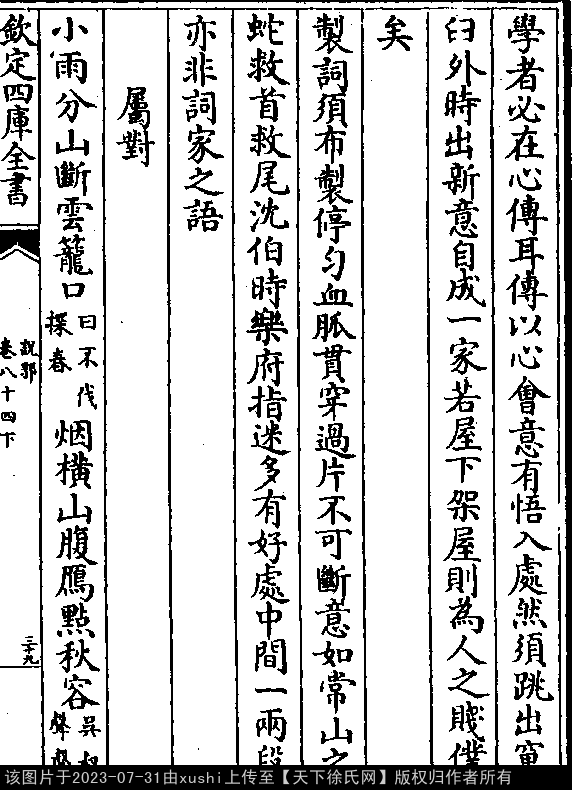 學者必在心傳耳傳以心會意有悟入處然須跳出窠
臼外時出新意自成一家若屋下架屋則為人之賤僕
矣
製詞須布製停勻血脈貫穿過片不可斷意如常山之
蛇救首救尾沈伯時樂府指迷多有好處中間一兩段
亦非詞家之語
屬對
小雨分山斷雲籠口日不伐探春烟橫山腹鴈點秋容
欽定四庫全書
說郛
卷八十四下
三十九
该图片于2023-07-31由xushi上传至【天下徐氏网】版权归作者所有